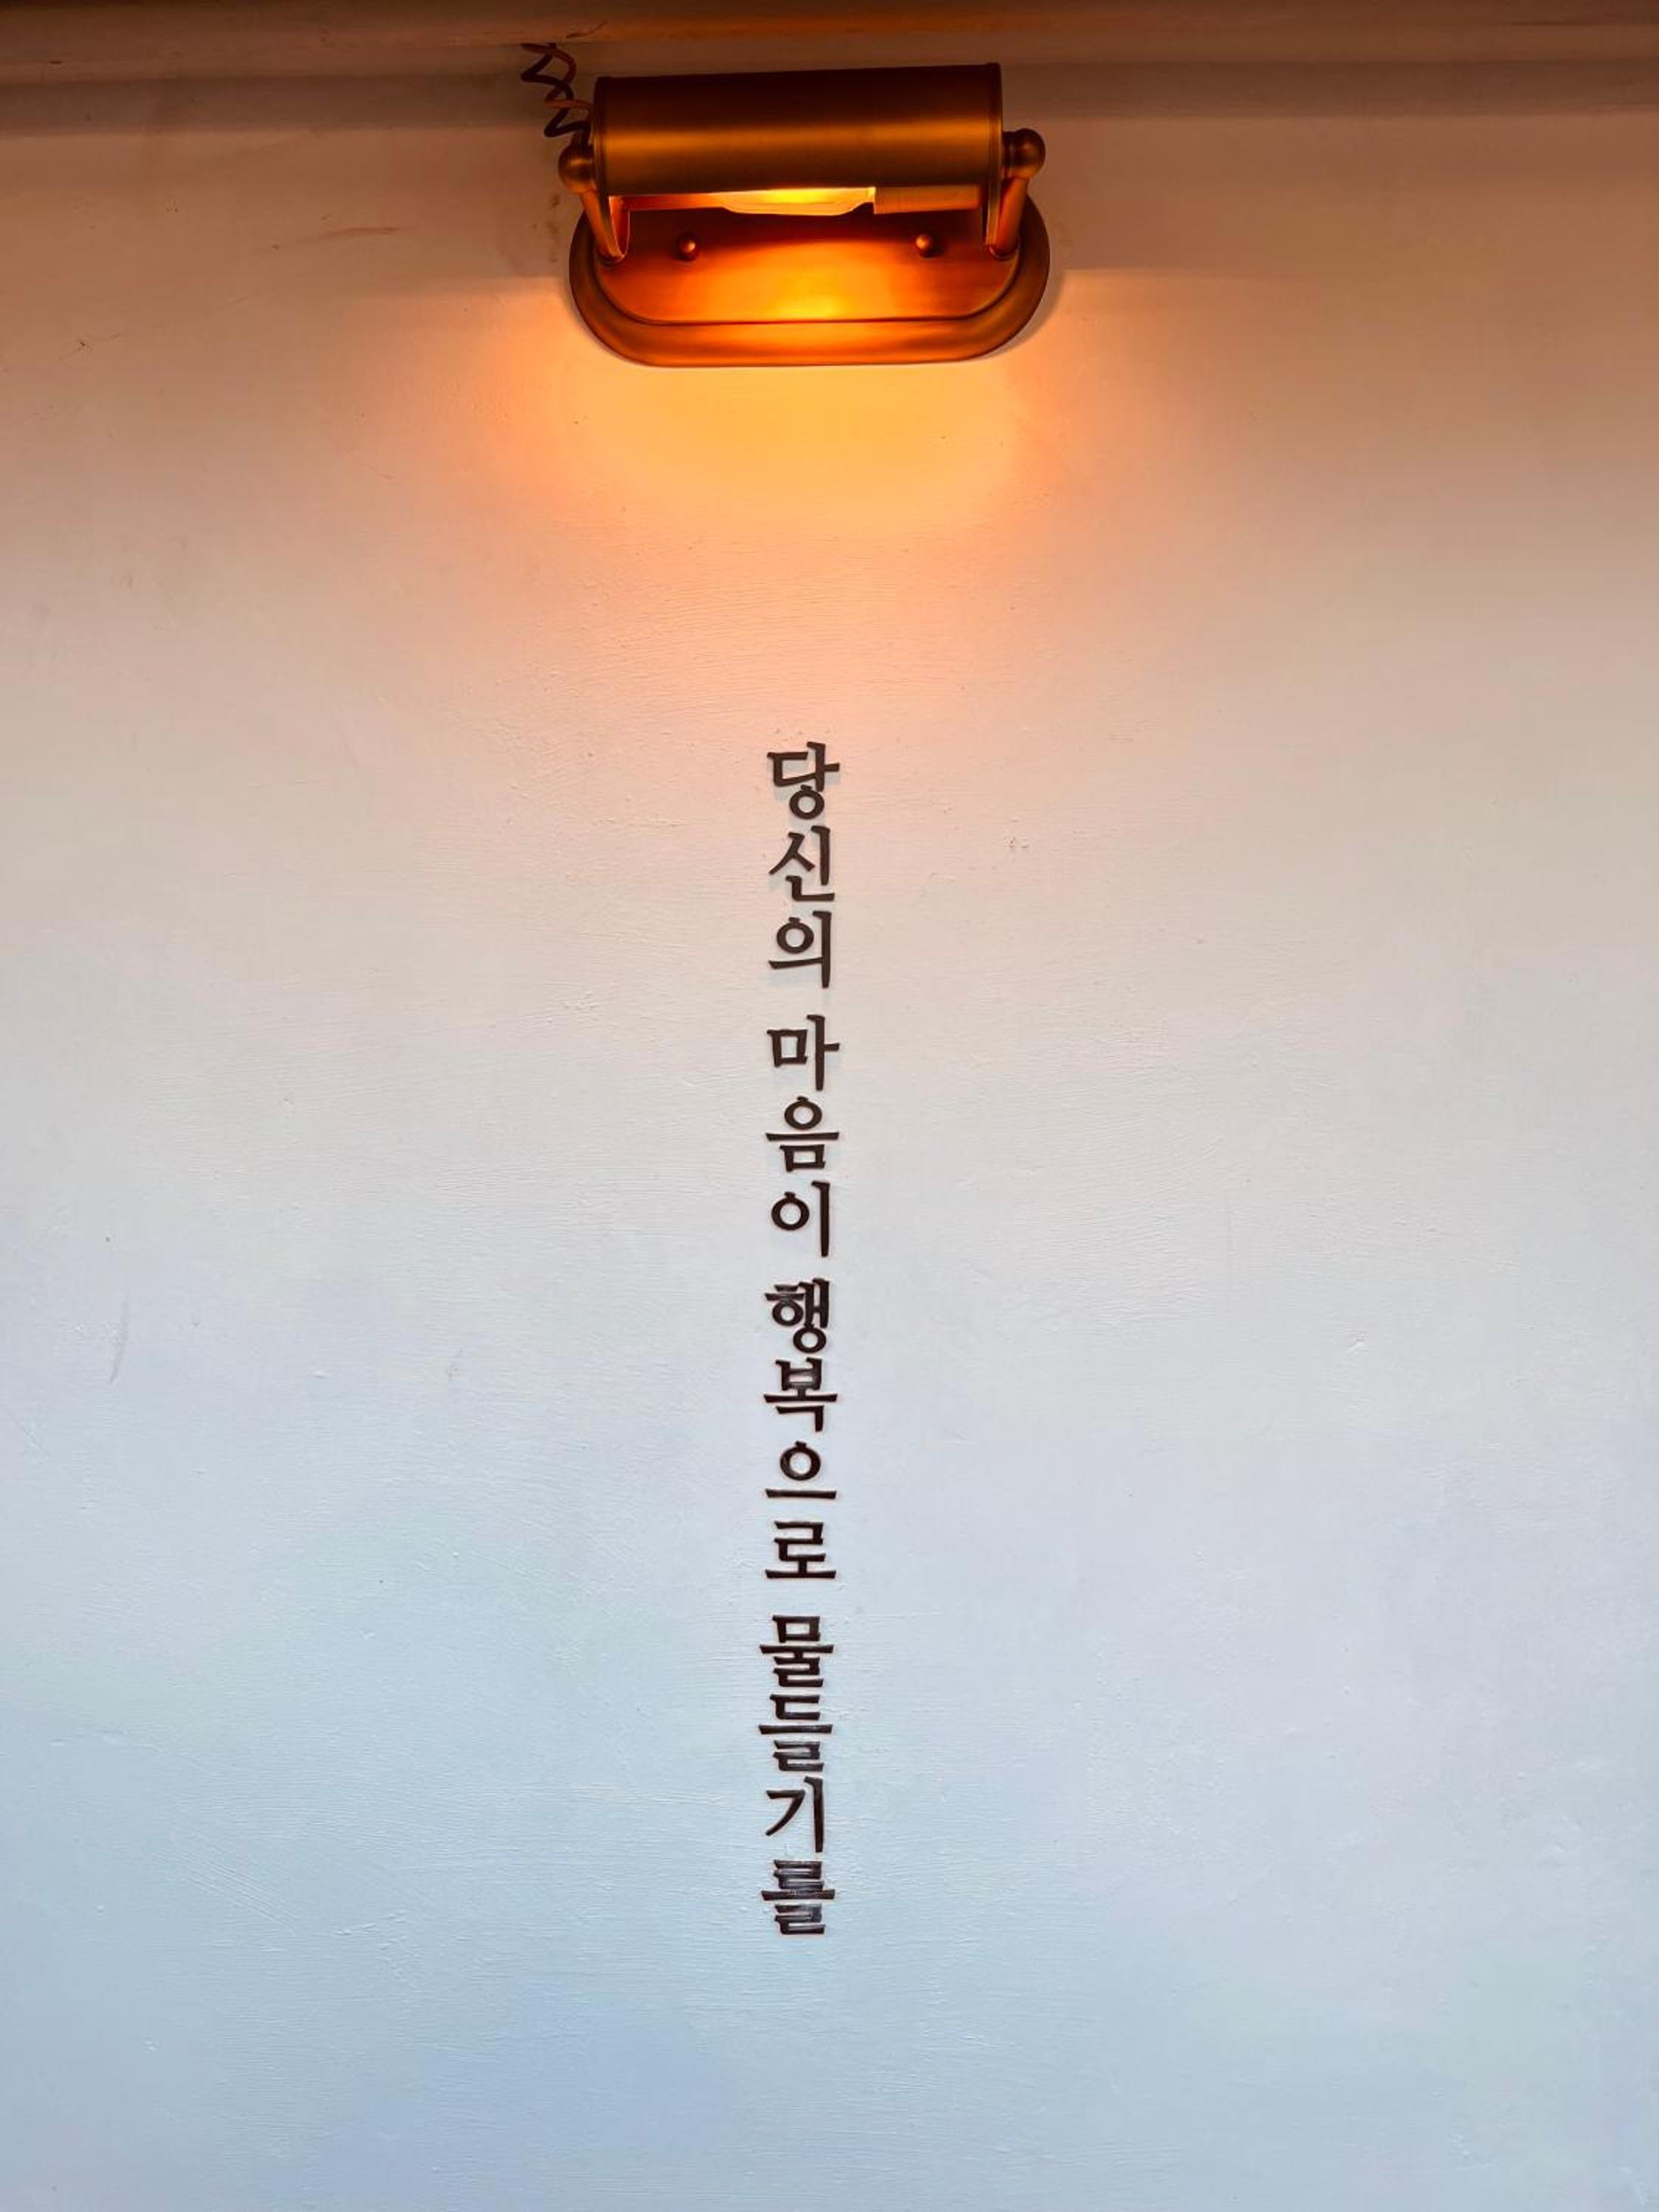 당신의 마음이 행복으로 물들기를